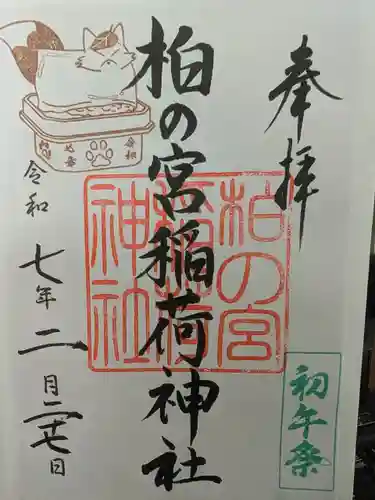 奉拝
初午祭
柏の宮稲荷神社
柏の宮
稲荷
神社
令和七年二月二十七日